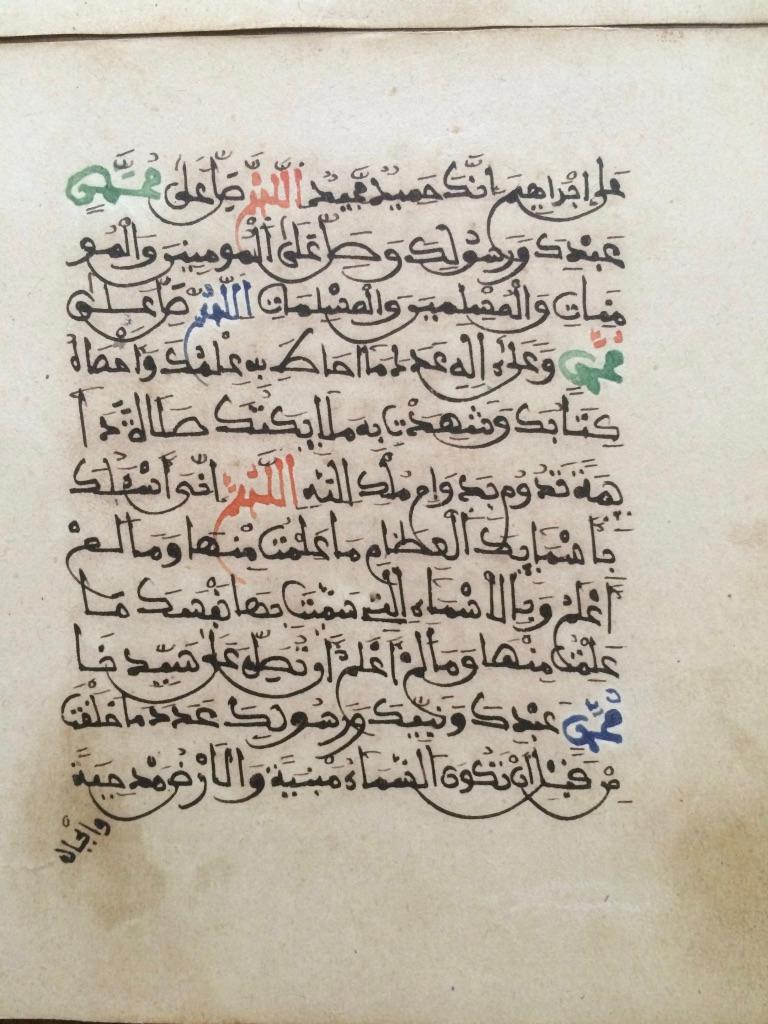 على إبراهيم إنك حميد مجيد اللهم صل على محمد
عبدك ورسولك وصل على المومنين والمو
منات والمسلمين والمسلمات اللهم صل على
محمد وعلى اله عدد ما احاط به علمك واحصاه
كتابك وشهدت به ملايكتك صلاة دا
يمة تدوم بدوام ملك الله اللهم اني أسئلك
باسمايك العظام ما علمت منها وما لم
أعلم وبالاسماء التي سميت بها نفسك ما
علمت منها وما لم أعلم أن تصلي على سيدنا
محمد عبدك ونبيك ورسولك عدد ما خلقت
من قبل أن تكون السماء مبنية والارض مدحية
والجبال